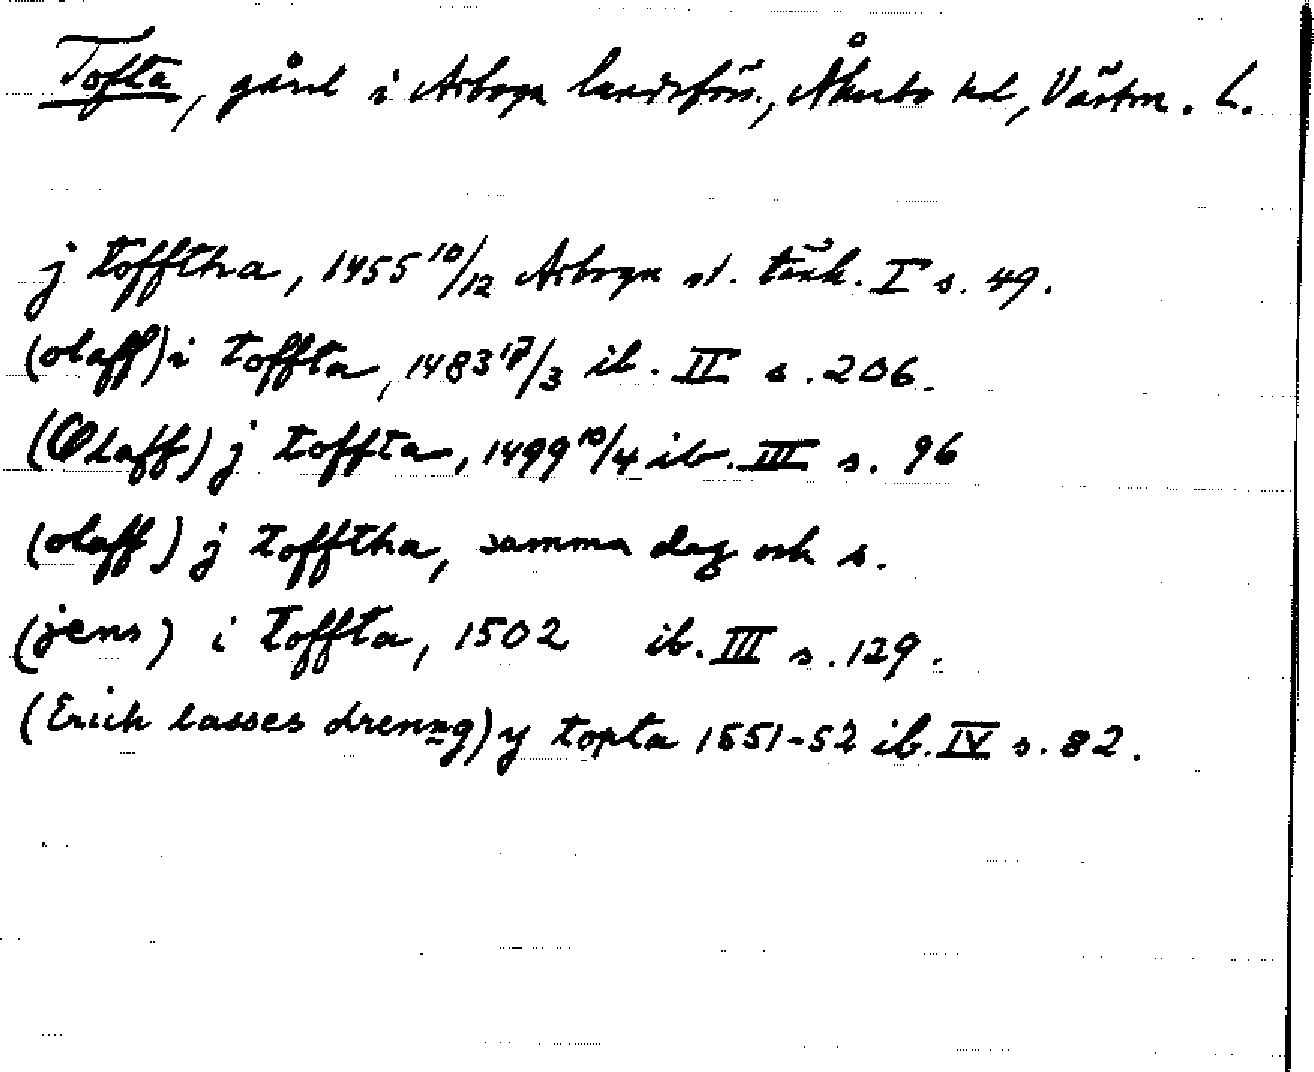 Tofta, gård i Arboga landsförs., Åkerbo hd, Västm. L.
j tofftha, 1455 10/12 Arboga st. tänk. I s. 49.
(olaff) i toffta, 1483 17/3 ib. II s. 206.
(Olaff) j toffta, 1499 10/4 ib. III s. 96
(olaff) j tofftha, samma dag och s.
(jens) i toffta, 1502 ib. III s. 129.
(Erich lasses drenng) y topta 1551-52 ib. IV s. 82.